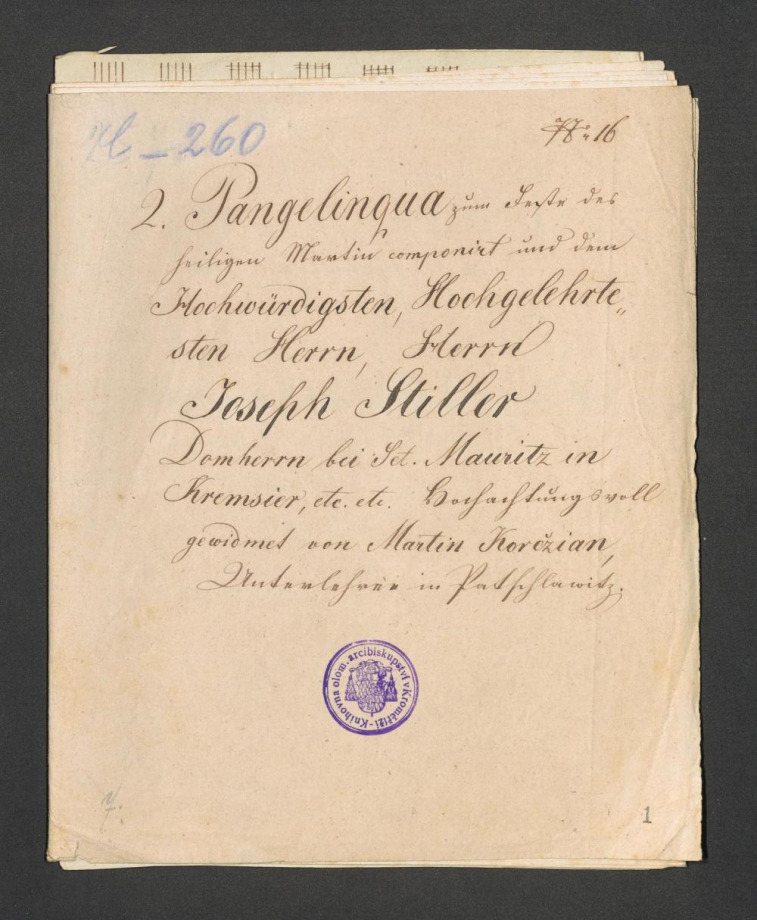 H – 260
N° 16
2. Pangelinqua zum Feste des
heiligen Martin componirt und dem
Hochwürdigsten, Hochgelehrte„
sten Herrn, Herrn
Joseph Stiller
Domherrn bei Sct. Mauritz in
Kremsier, etc. etc. Hochachtungsvoll
gewidmet von Martin Korčzian,
Unterlehrer in Patschlawitz.
Knihovna olom. arcibiskupství v Kroměříži
1